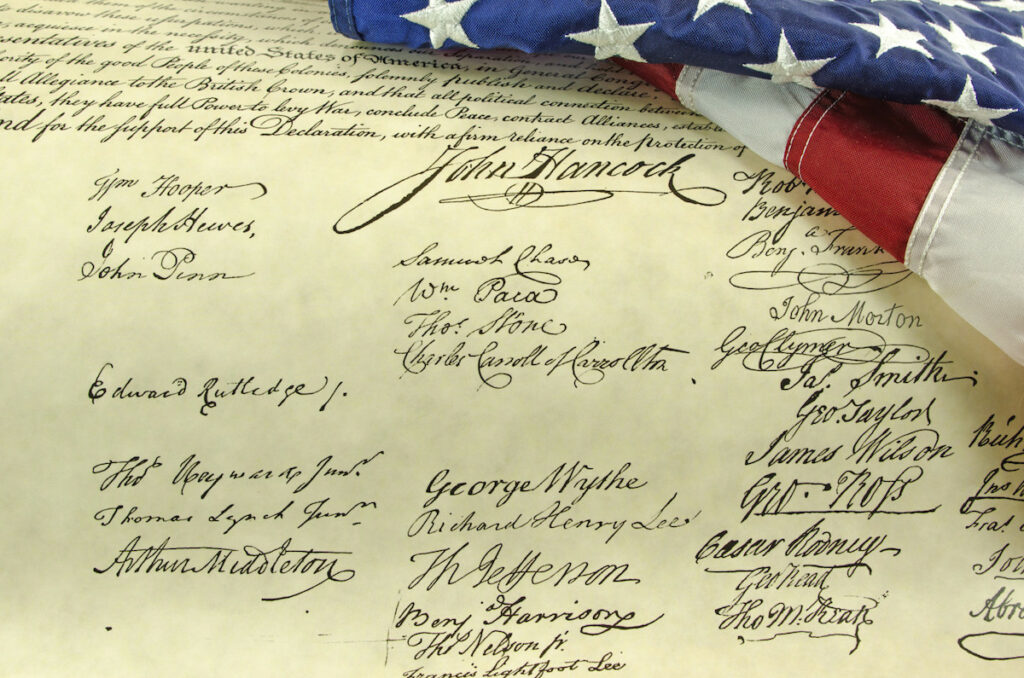 disavow these usurpations, which
acquiesce in the necessity, which denounces our Separation, and
sentatives of the united States of America, in General Cong
ority of the good People of these Colonies, solemnly publish and declare,
ll Allegiance to the British Crown, and that all political connection between
tates, they have full Power to levy War, conclude Peace, contract Alliances, establ
nd for the support of this Declaration, with a firm reliance on the Protection of
John Hancock
Wm Hooper
Joseph Hewes,
John Penn
Edward Rutledge /.
Thos Heyward Junr.
Thomas Lynch Junr.
Arthur Middleton
Samuel Chase
Wm. Paca
Thos. Stone
Charles Carroll of Carrollton
George Wythe
Richard Henry Lee
Th Jefferson
Benja Harrison
Thos Nelson jr.
Francis Lightfoot Lee
Rob
Benjam
Benja. Frank
John Morton
Geo Clymer
Jas. Smith.
Geo. Taylor
James Wilson
Geo. Ross
Caesar Rodney
Geo Read
Tho M:Kean
Rich
Jns
Fras.
Abra